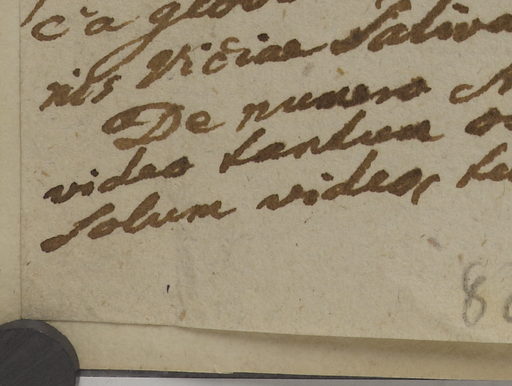 ca glob
nis Viciae Sativa
De numero
video tantum
Solum video,
8